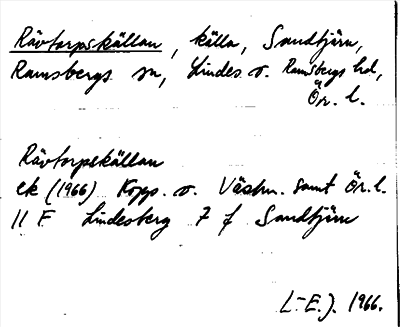 Rävtorpskällan, källa, Sandtjärn,
Ramsbergs sn, Lindes o. Ramsbergs hd,
Ör. l.
Rävtorpskällan
ek (1966) Kopp. o. Västm. samt Ör. l.
11 F Lindesberg 7 f Sandtjärn
L-E. J. 1966.